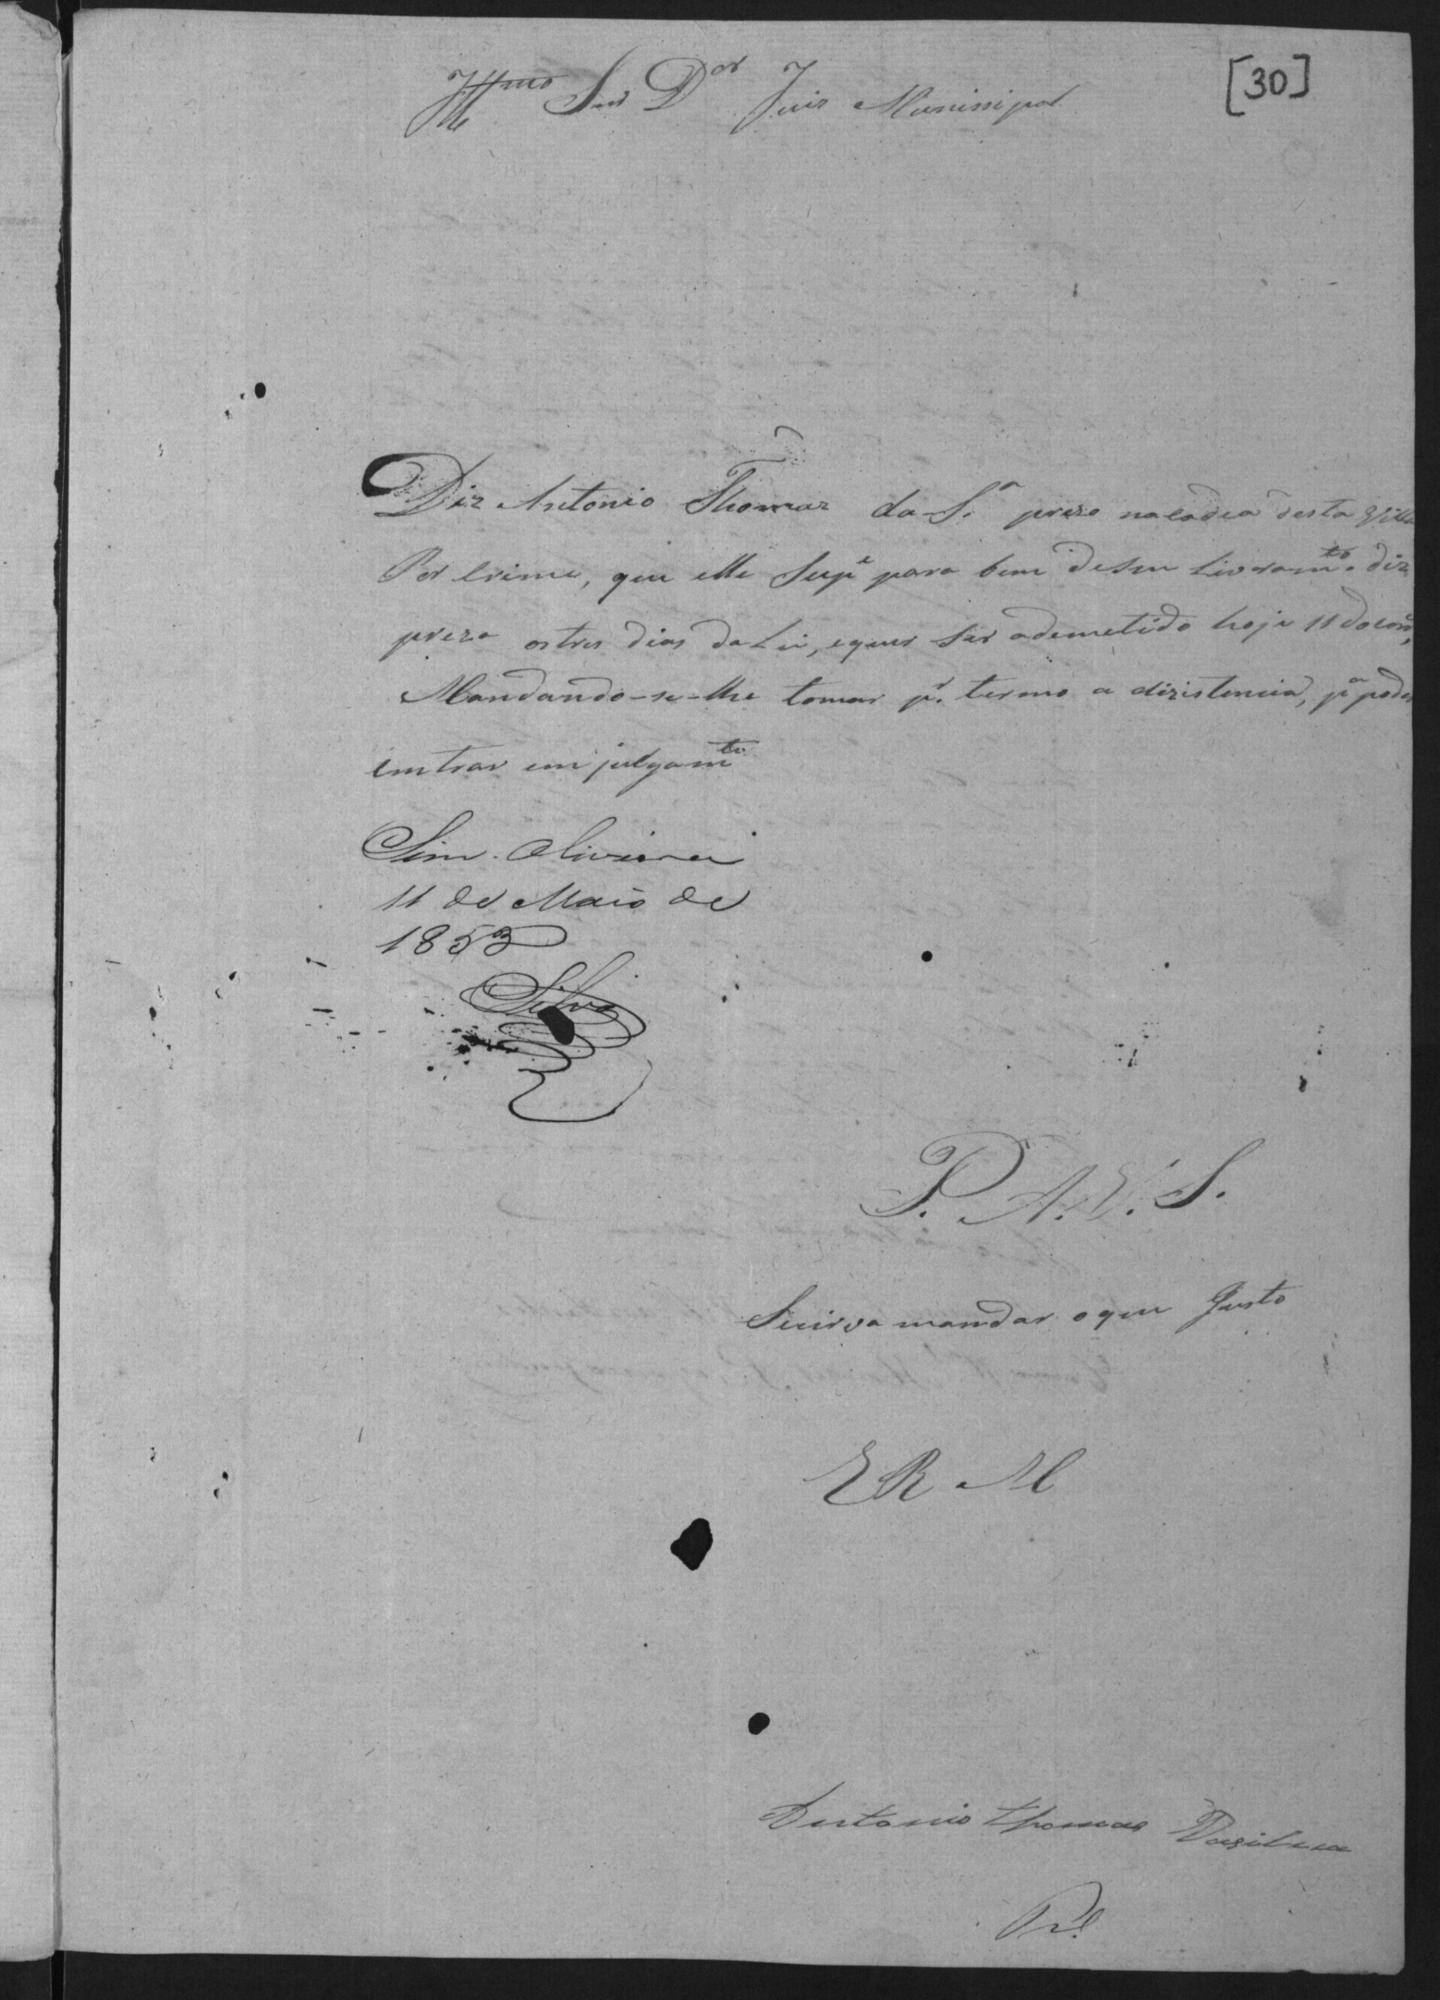 [30]
Illmo Snr Dor Juis Munissipal
Diz Antonio Thomaz da Sa. prezo na cadea desta Villa
Por crime, que elle Supe para bem de seu Livramto. diz
preza os tres dias da Lei, e quer ser ademetido hoje 11 do corre,
Mandando-se-lhe tomar pr. termo a dizistencia, pa poder
emtrar em julgamto
Sim. Oliveira
11 de Maio de
1853
Silva
P. A. V. S.
Seirva mandar o que Justo
E R M
Antonio thomas Dasilva